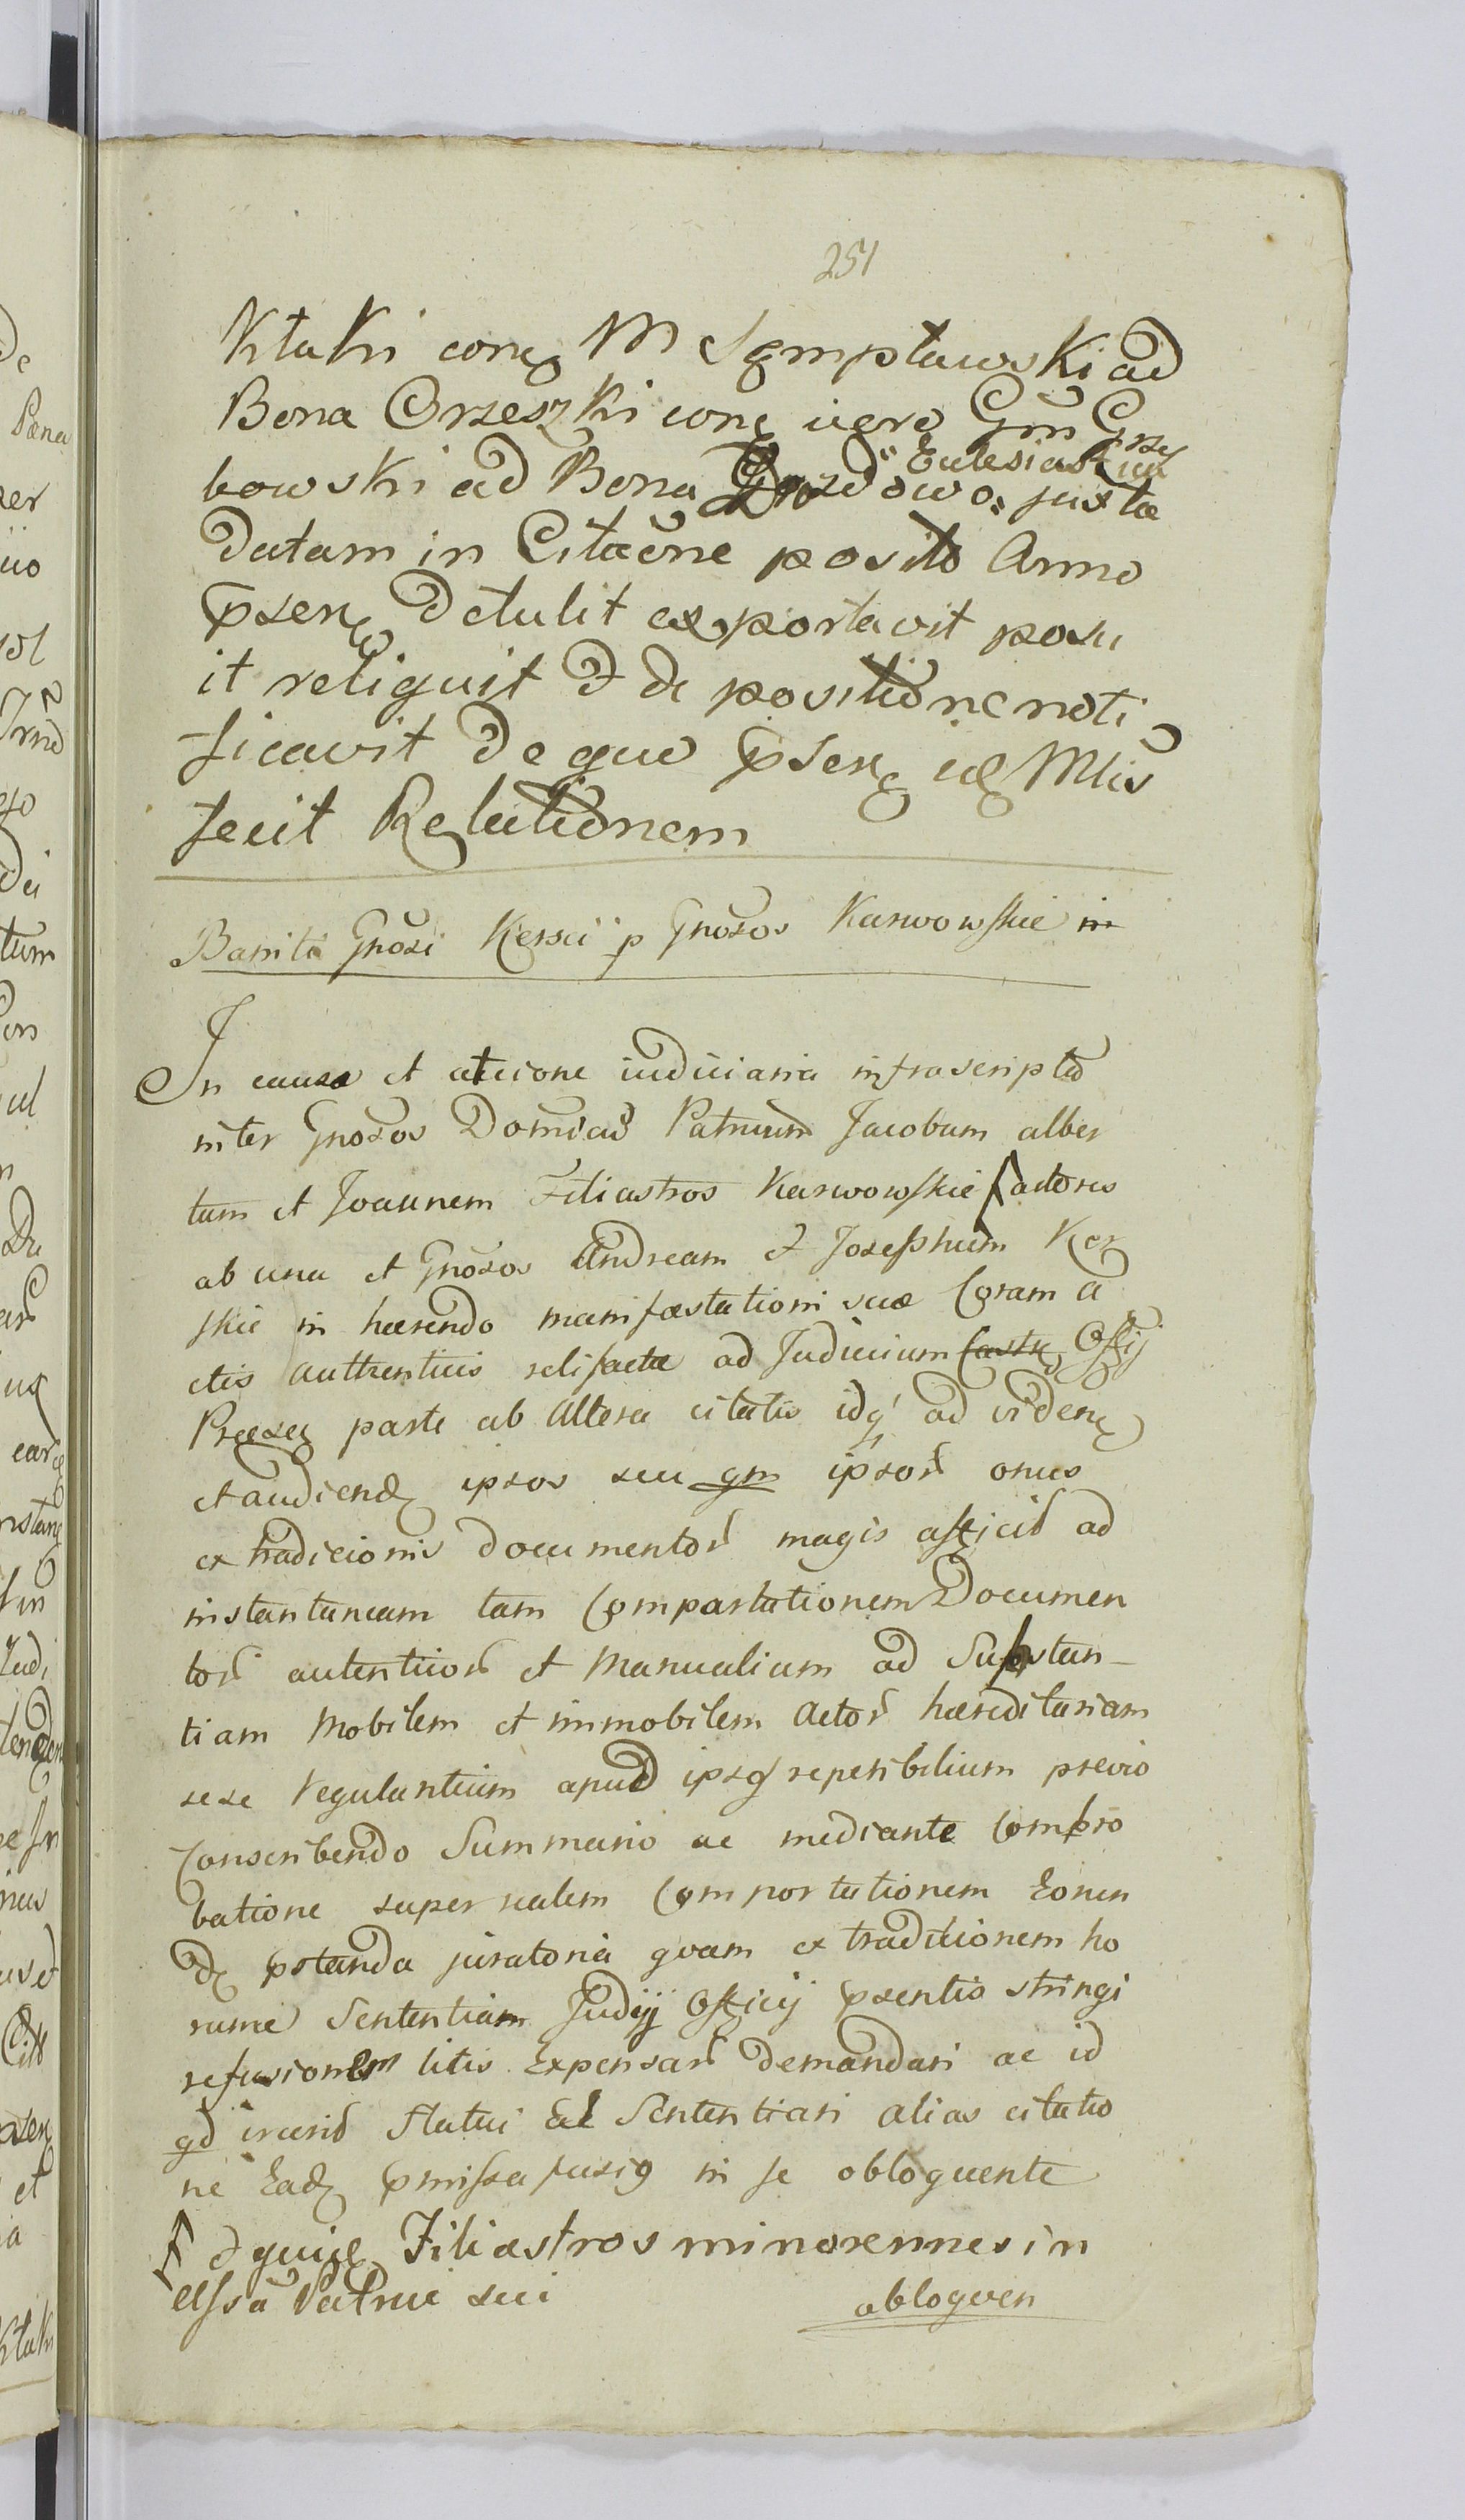 251
Ktaki conĘ M Sęmpławski ad
Bona Orzeszki conĘ vero Gm̃ Grzy
bowski ad Bona Drozdowo Eclesiasticu juxta
Datam in Citaõne posito Anno
p̃senĘ Detulit exportavit posu
it reliquit & de positione noti
ficavit de quo p̃senĘ idĘ Mlis
fecit Relationem
Banita Gnõsi Kerscii p Gnõsos Karwowskie in
In causa et accione iudiciaria infrascripta
inter Gnõsos Domicũ Patruum Jacobum alber
tum et Joannem Filiastros Karwowskie actores
ab una et Gnõsos Andream & Josephum Ker
skie in hærendo manifæstationi suæ Coram a
ctis authenticis relifactæ ad Judicium Castrę Offij
PræseĘ parte ab Altera citatis idq' ad videnĘ
et audiendĘ ipsos seu qm ipsor onus
extradicionis Documentor magis afficit ad
instantaneam tam Comportationem Documen
tor autenticor et Manualium ad Substan-
tiam Mobilem et immobilem Actor hæreditariam
sese regulantium apud ipsos reperibilium previo
Conscribendo Summario ac mediante Compro
batione super realem Comportationem Eorun
dĘ p̃standa juratoria quam extraditionem ho
rume Sententiam Judij Officij p̃sentis stringi
refusionem litis Expensar demandari ac id
qd iuris Statui et Sententiari alias citatio
ne EadĘ p̃missa fusi9 in se obloquente
& quidĘ Filiastros minorennes in
assã Patrui sui
obloquen